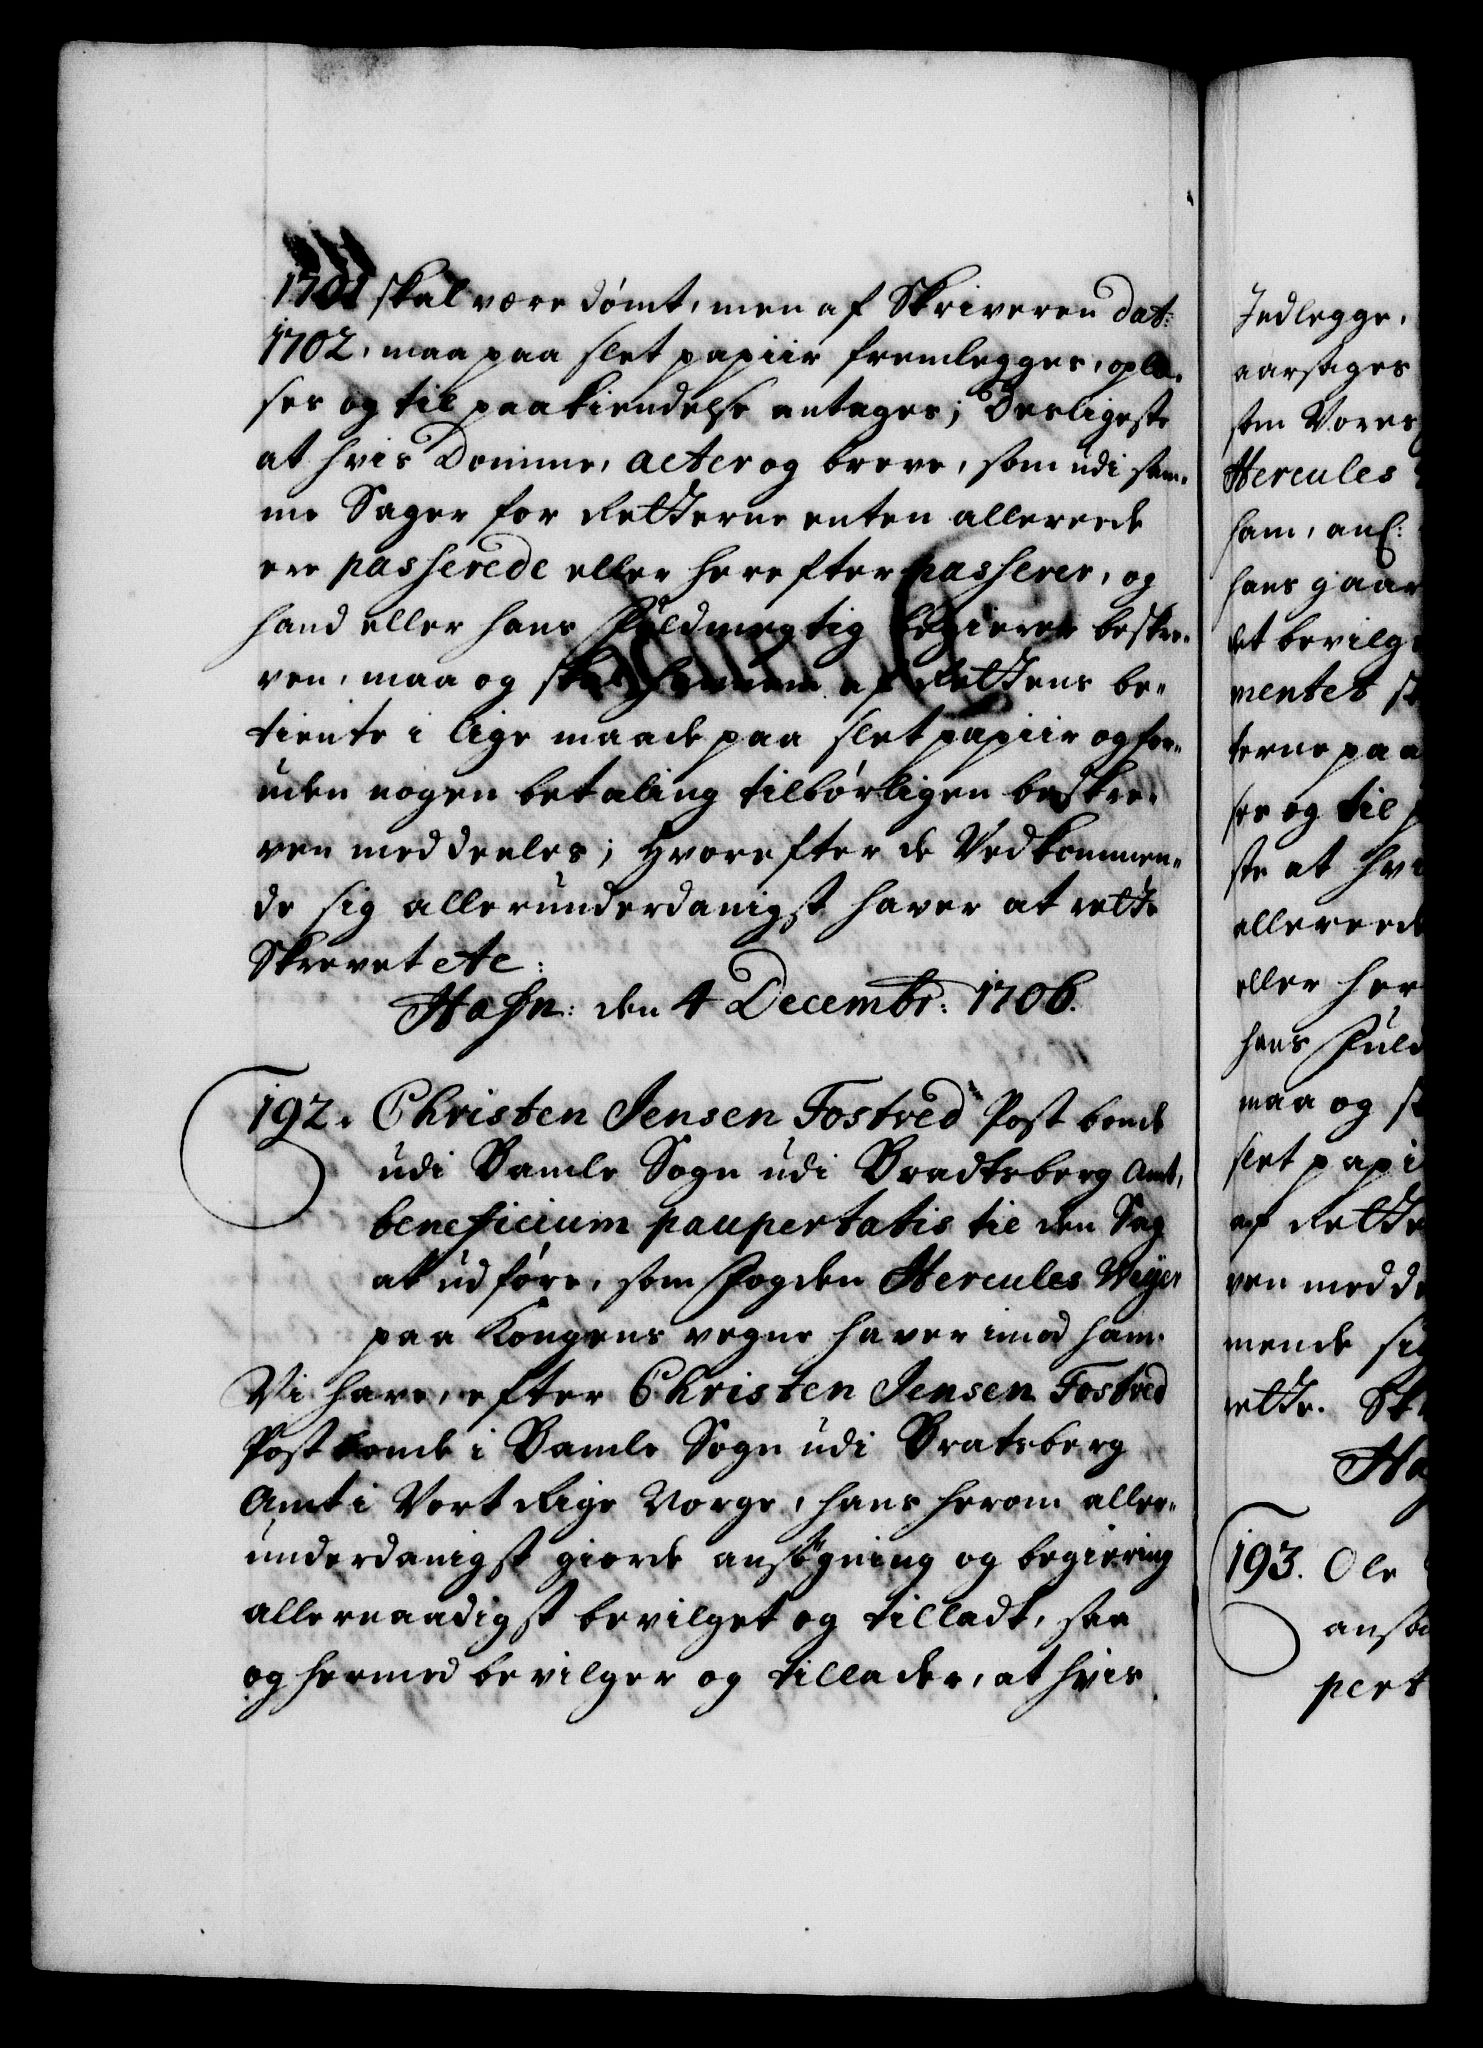 1701 skal være dømt, men af Skriveren dat:
1702, maa paa slet papiir fremlegges, oplæ-
ses og til paakiendelse antages; Desligeste
at hvis Domme, acter og breve, som udi sam-
me Sager for Retterne enten allereede
ere passerede eller herefter passerer, og
hand eller hans Fuldmegtig begierer beskre-
ven, maa og skal hannem af Rettens be-
tiente i lige maade paa slet papiir og for-
uden nogen betaling tilbørligen beskre-
ven meddeeles; Hvorefter de Vedkommen-
de sig allerunderdanigst haver at rette
Skrevet etc:
Hafn: den 4 Decembr: 1706.
192. Christen Jensen Fostved Post bonde
udi Bamle Sogn udi Bradtsberg Amt,
beneficium paupertatis til den Sag
at udføre, som Fogden Hercules Weyer
paa Kongens vegne haver imod ham.
Vi have, efter Christen Jensen Fostved
Post bonde i Bamle Sogn udi Bratsberg
Amt i Vort Rige Norge, hans herom aller-
underdanigst giorde ansøgning og begiering
allernaadigst bevilget og tilladt, saa
og hermed bevilger og tillader, at hvis
Indlegge,
aarsages
som Vores
Hercules
ham, anl:
hans gaar
det bevilg
mentet
terne paa
ses og til
ste at hvi
allereede
eller her
hans Fuld
maa og s
slet papi
af Rette
ven medde
mende sig
rette. Sk
Ha
193. Ole
ansø
pert